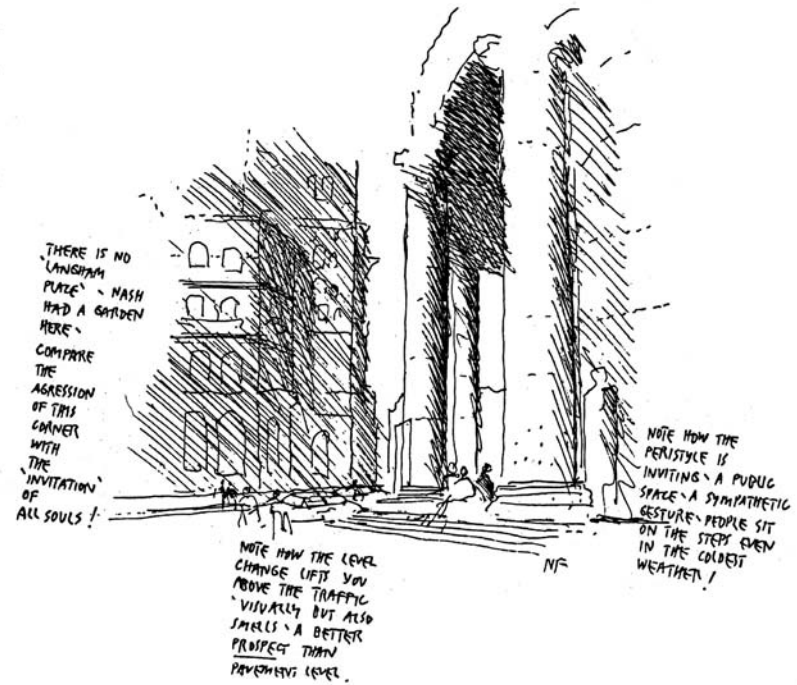 THERE IS NO
'LANGHAM
PLACE' - NASH
HAD A GARDEN
HERE -
COMPARE
THE
AGRESSION
OF THIS
CORNER
WITH
THE
'INVITATION'
OF
ALL SOULS !
NOTE HOW THE LEVEL
CHANGE LIFTS YOU
ABOVE THE TRAFFIC
- VISUALLY BUT ALSO
SMELLS - A BETTER
PROSPECT THAN
PAVEMENT LEVEL.
NOTE HOW THE
PERISTYLE IS
INVITING - A PUBLIC
SPACE - A SYMPATHETIC
GESTURE - PEOPLE SIT
ON THE STEPS EVEN
IN THE COLDEST
WEATHER !
NF